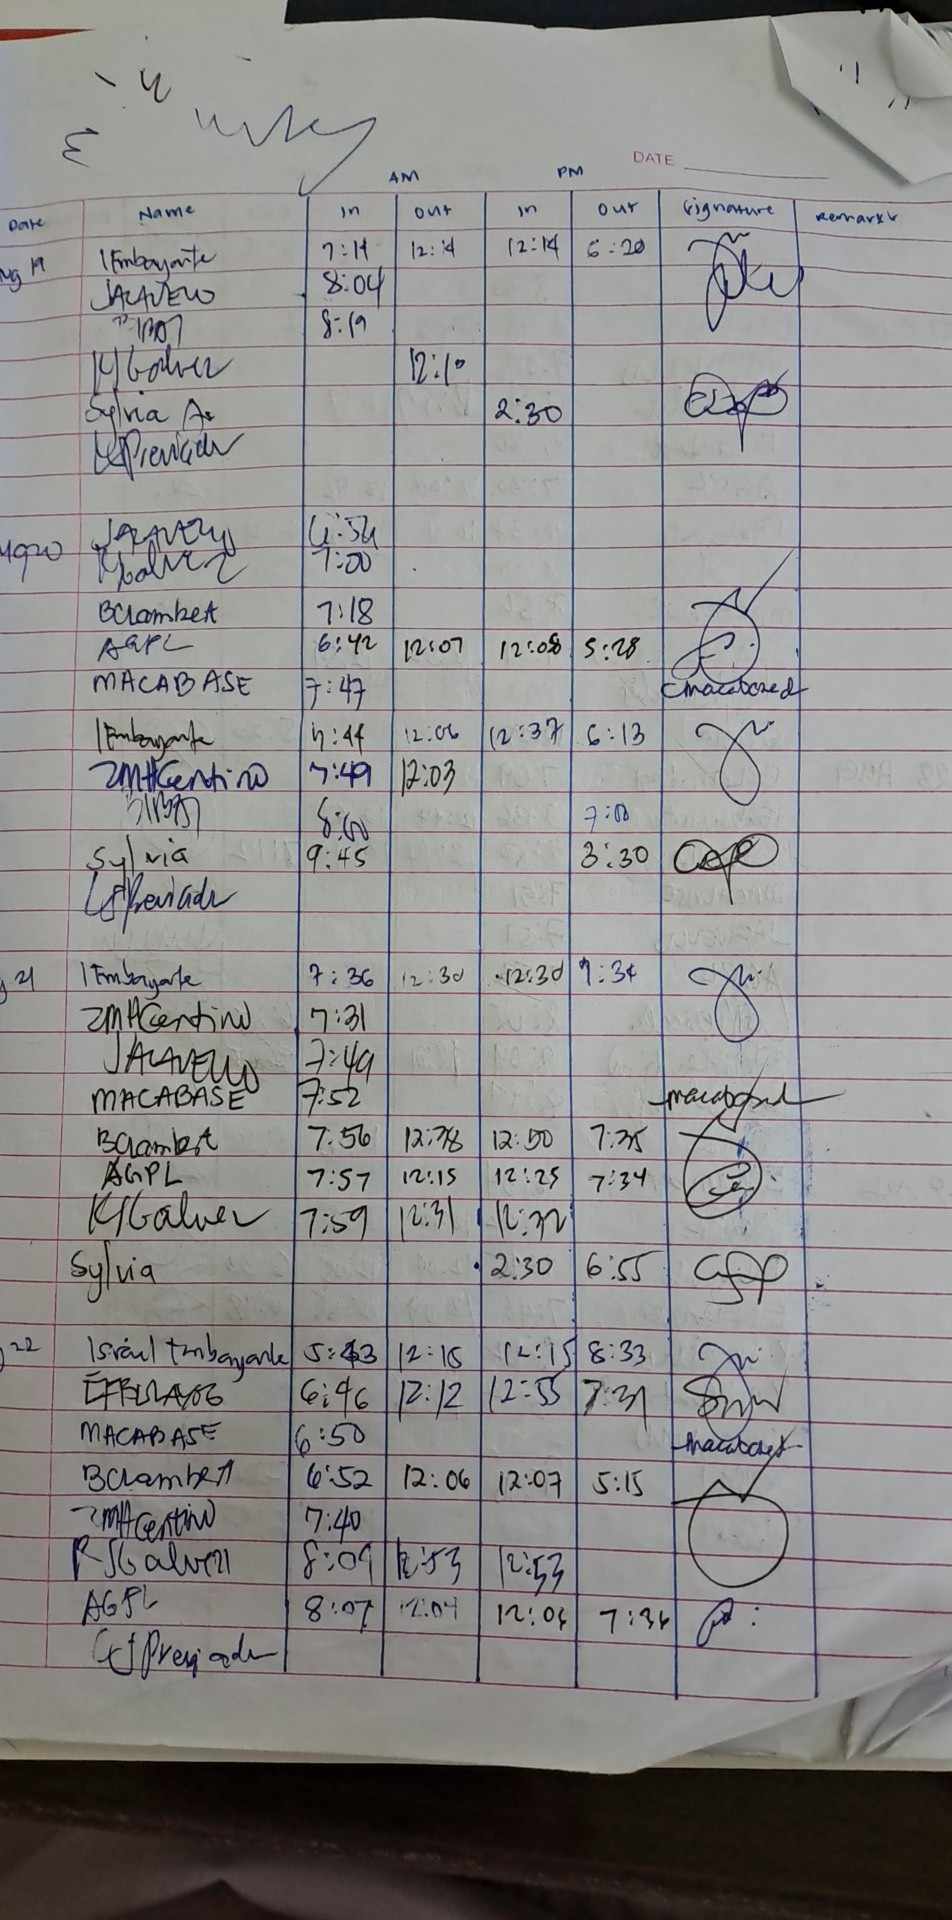 DATE
AM PM
Date Name In Out In Out Signature Remarks
19 IEmbayarte 7:19 12:14 12:14 6:20
JALAVELLO 8:04
8:19
KJGalvez 12:10
Sylvia A. 2:30
LSPreviado
20 JALAVELLO 6:54
KJGalvez 7:00
BClambert 7:18
AGPL 6:42 12:07 12:08 5:28
MACABASE 7:47 macabased
IEmbayarte 7:44 12:06 12:37 6:13
ZMACentino 7:49 12:03
8:00 7:00
Sylvia 9:45 3:30
LSPreviado
21 IEmbayarte 7:36 12:30 12:30 7:34
ZMACentino 7:31
JALAVELLO 7:49
MACABASE 7:52
BClambert 7:56 12:38 12:50 7:35
AGPL 7:57 12:15 12:25 7:34
KJGalvez 7:59 12:31 12:32
Sylvia 2:30 6:55
22 Israel Embayarte 5:43 12:15 12:15 8:33
6:46 12:12 12:55 7:31
MACABASE 6:50
BClambert 6:52 12:06 12:07 5:15
ZMACentino 7:40
Galvez 8:09 12:53 12:53
AGPL 8:07 12:04 12:04 7:34
Previado